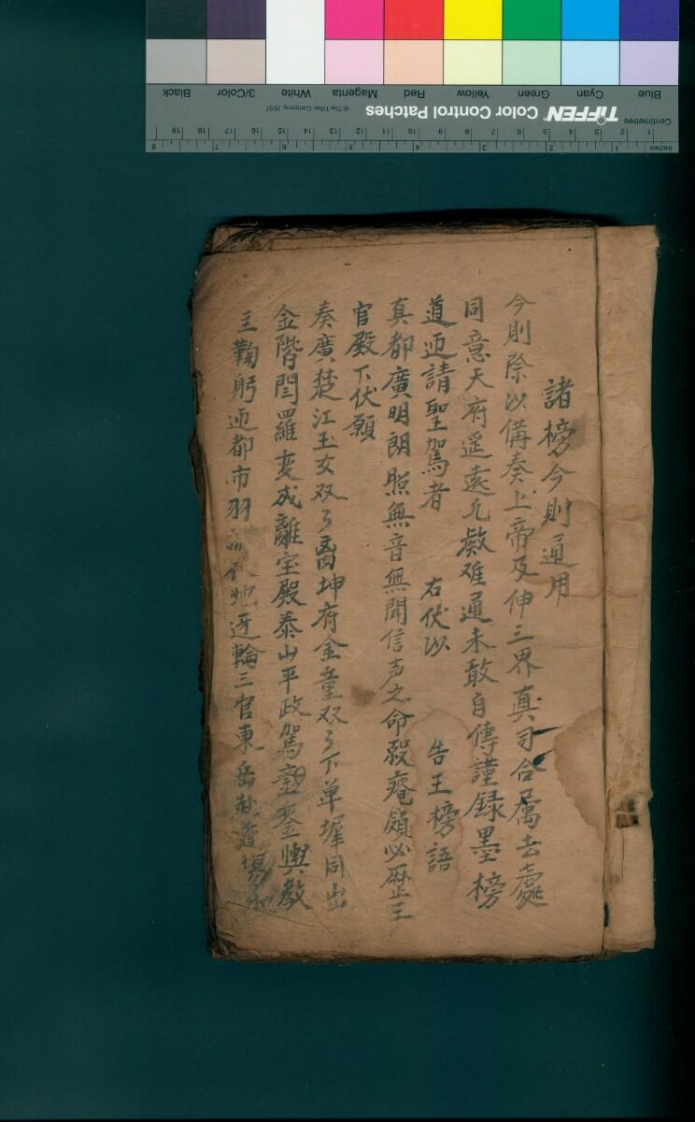 諸榜今則通用
今則除以俻奏上帝及伸三界真司合属去處
同意天府遥遠凢戲难通未敢自傳謹録墨榜
道迎請聖駕者 右伏以 告王榜語
真都廣明朗照無音無聞信声之命殁庵頒必歷王
官殿下伏願
奏廣楚江玉女双々离坤府金童双々下单墀同出
金階閆羅变成離宝殿泰山平政駕金輿教
主鞠躬迎都市羽地迓輪三官東岳赴
Blue Cyan Green Yellow Red Magenta White 3/Color Black
TIFFEN Color Control Patches
© The Tiffen Company, 2007
Centimetres 1 2 3 4 5 6 7 8 9 10 11 12 13 14 15 16 17 18 19
Inches 1 2 3 4 5 6 7 8